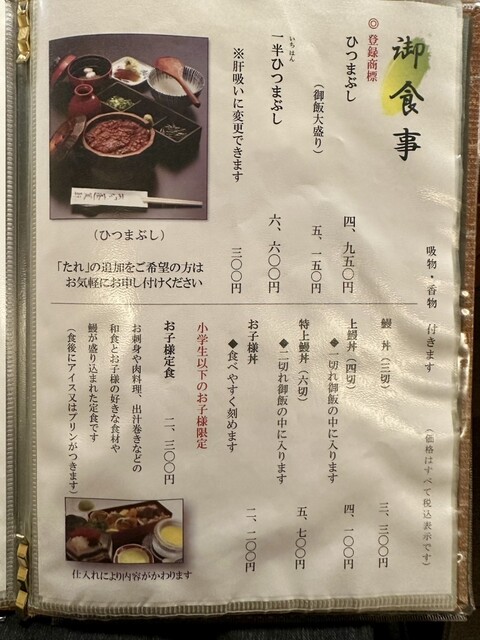 御食事
吸物・香物 付きます
(価格はすべて税込表示です)
◎登録商標
ひつまぶし 四、九五〇円
(御飯大盛り) 五、一五〇円
いちはん
一半ひつまぶし 六、六〇〇円
※肝吸いに変更できます 三〇〇円
(ひつまぶし)
「たれ」の追加をご希望の方は
お気軽にお申し付けください
鰻丼(三切) 三、三〇〇円
上鰻丼(四切) 四、一〇〇円
◆一切れ御飯の中に入ります
特上鰻丼(六切) 五、七〇〇円
◆二切れ御飯の中に入ります
お子様丼 二、二〇〇円
◆食べやすく刻めます
小学生以下のお子様限定
お子様定食 二、三〇〇円
お刺身や肉料理、出汁巻きなどの
和食とお子様の好きな食材や
鰻が盛り込まれた定食です
(食後にアイス又はプリンがつきます)
仕入れにより内容がかわります